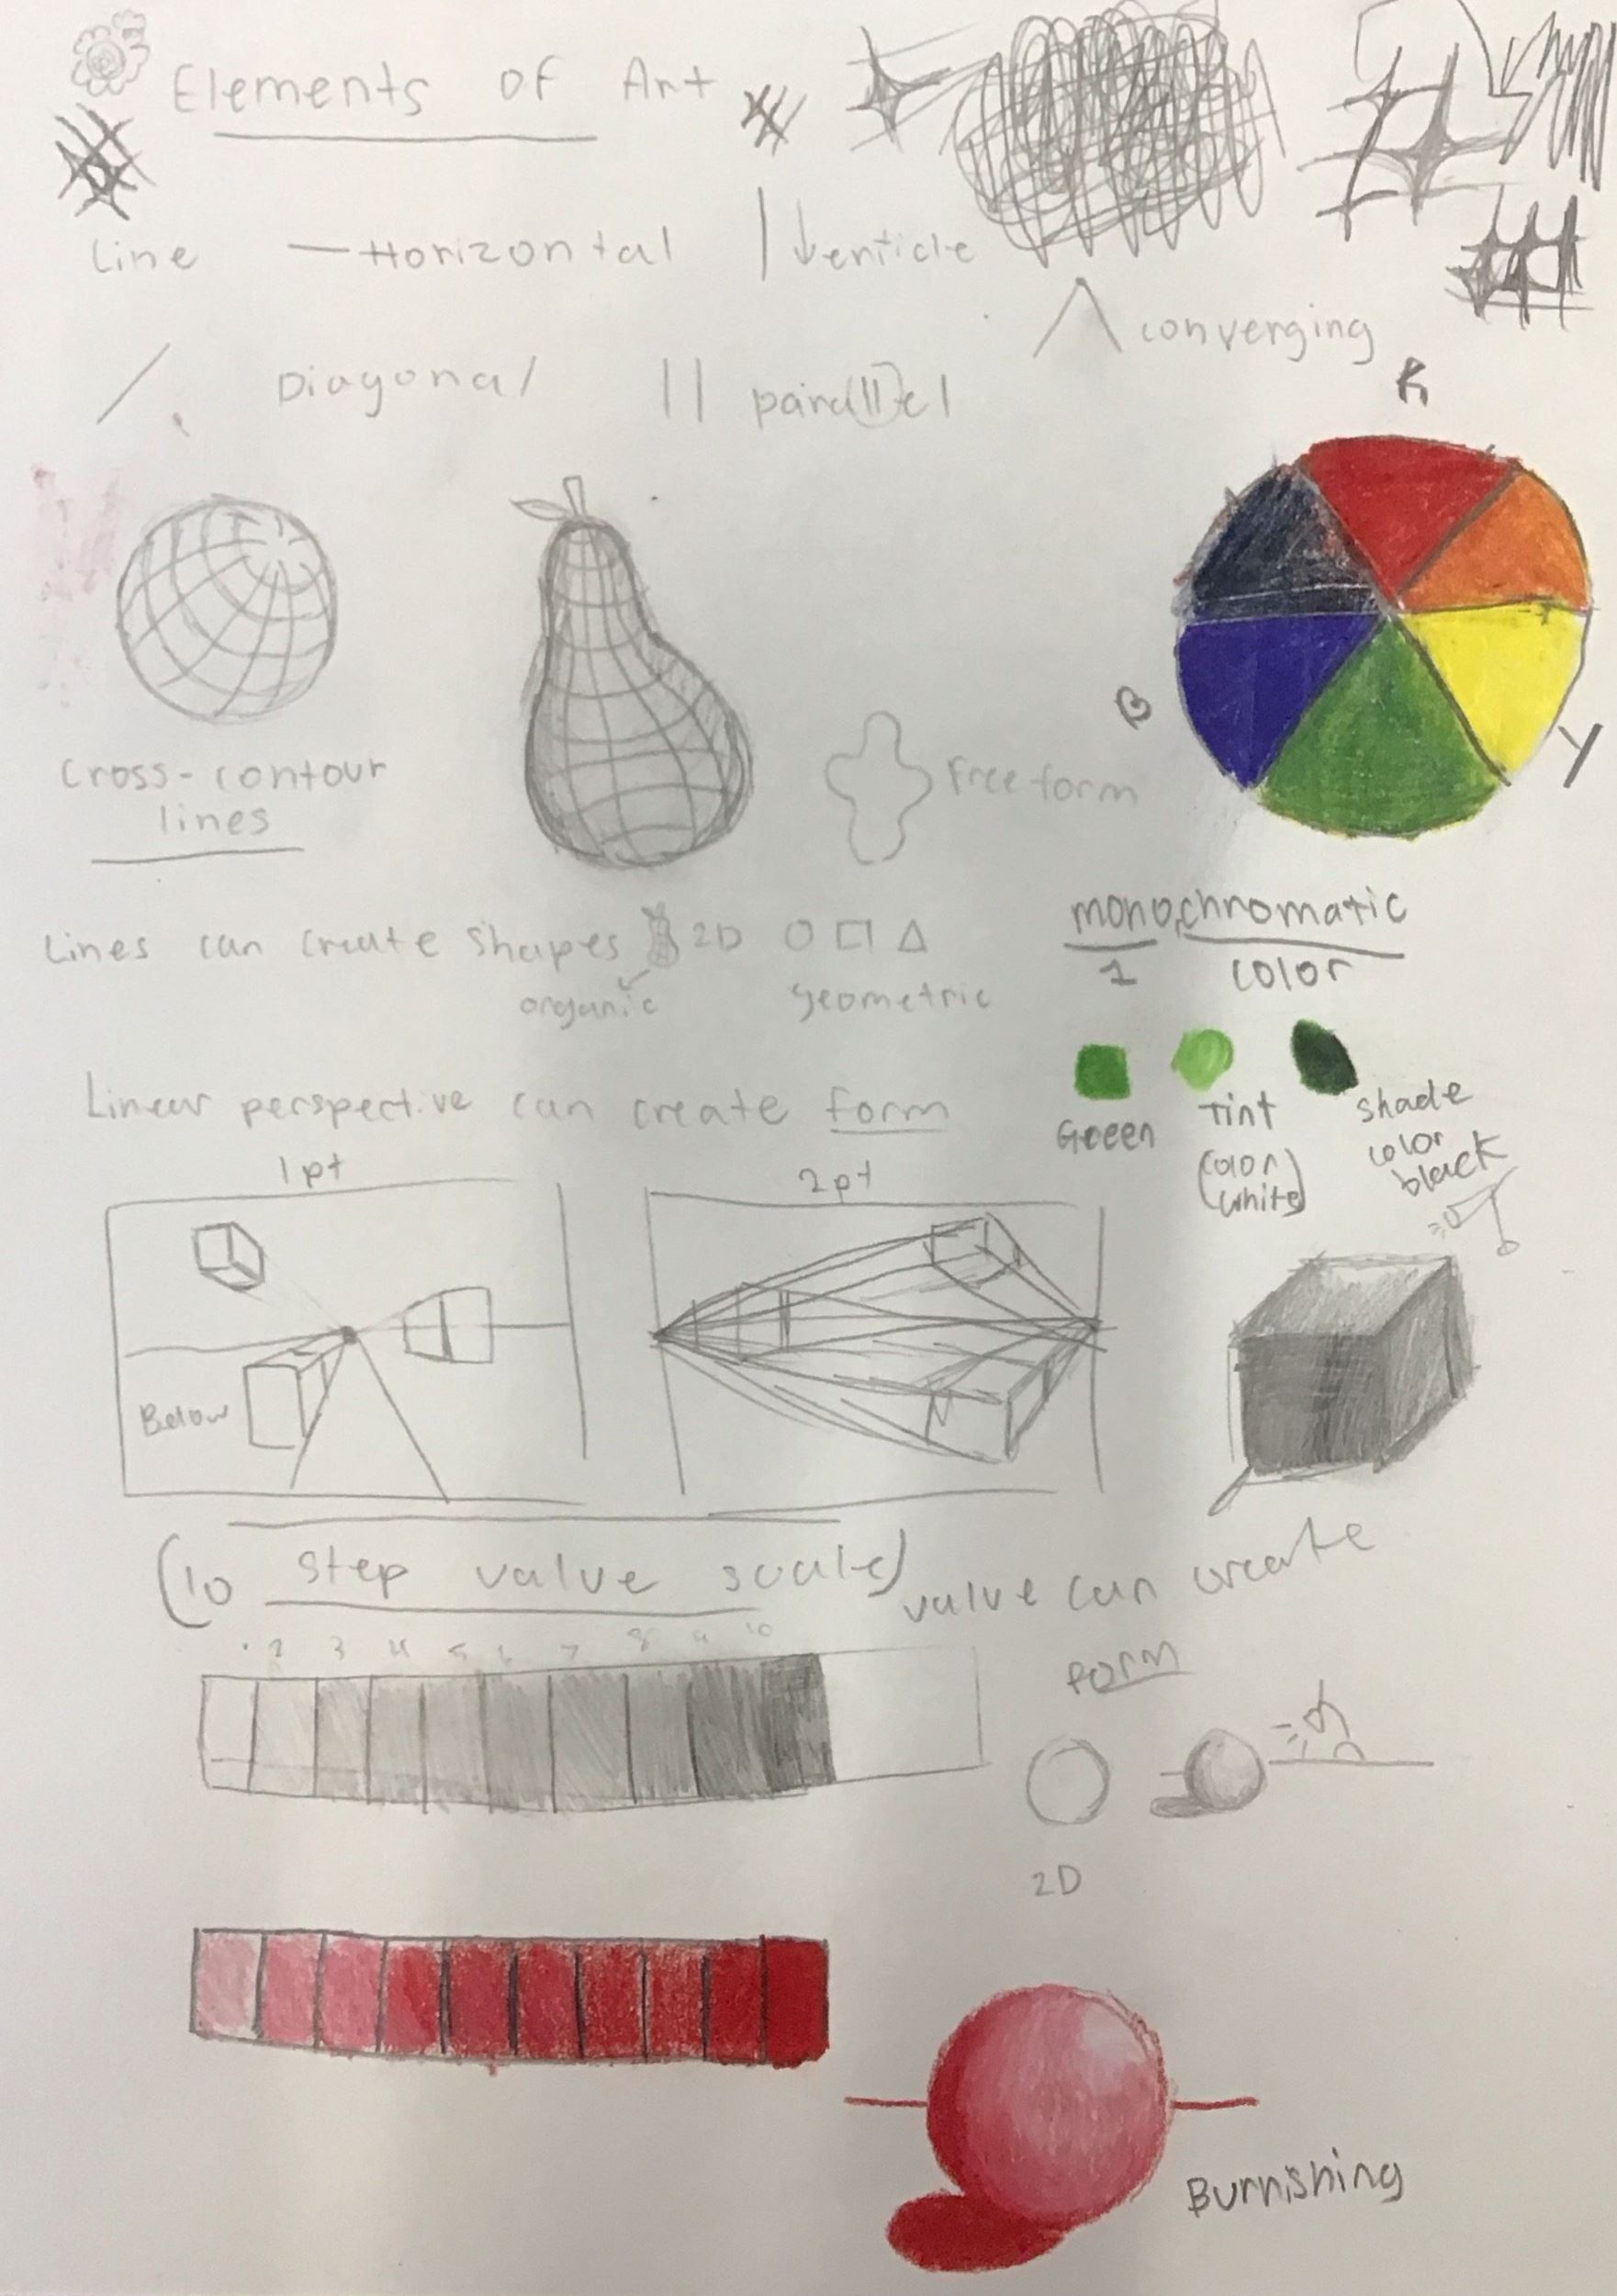 Elements of Art
Line — Horizontal | ↓verticle
converging
Diagonal || parallel
R
B
Y
Cross-contour
lines
Free form
Lines can create shapes 2D
organic geometric
monochromatic
1 color
Linear perspective can create form
Green
Tint
(color
white)
shade
color
black
1pt
2pt
Below
(10 step value scale)
value can create
form
2 3 4 5 6 7 8 9 10
2D
Burnishing